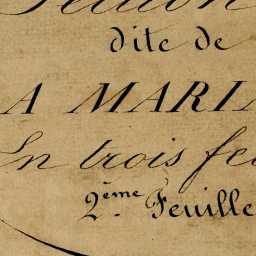 Section
dite de
A MARI
En trois fe
2ème Feuille